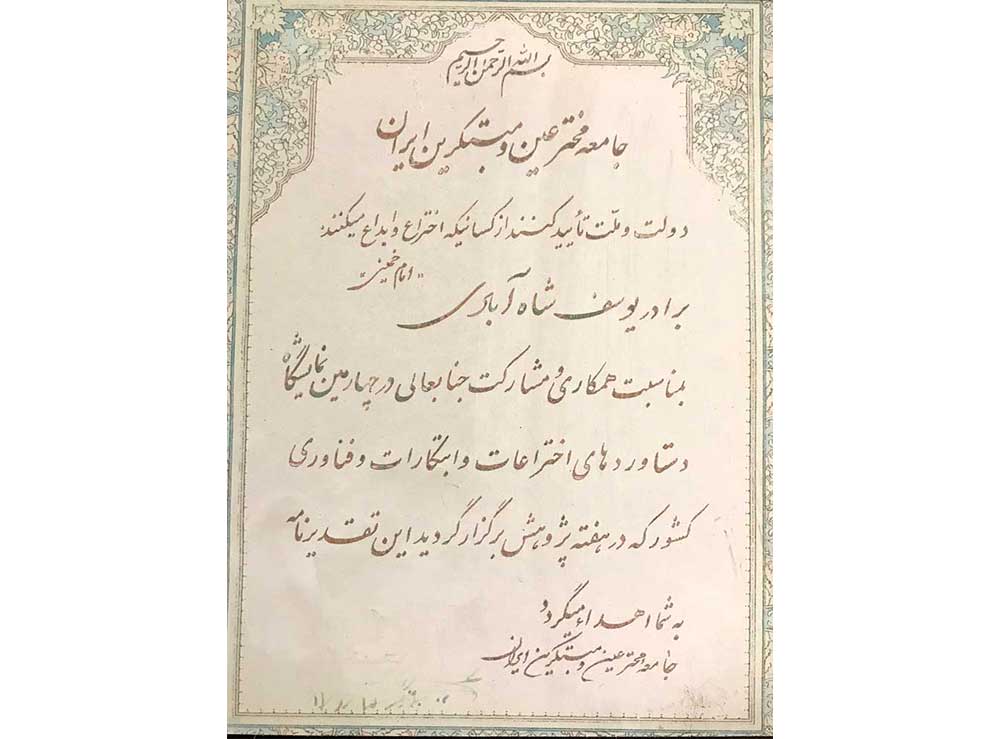 بسم الله الرحمن الرحیم
جامعه مخترعین و مبتکرین ایران
دولت و ملت تأیید کنند از کسانیکه اختراع و ابداع میکنند:
"امام خمینی"
برادر یوسف شاه آبادی
بمناسبت همکاری و مشارکت جنابعالی در چهارمین نمایشگاه
دستاوردهای اختراعات و ابتکارات و فناوری
کشور که در هفته پژوهش برگزار گردید این تقدیرنامه
به شما اهداء میگردد
جامعه مخترعین و مبتکرین ایران